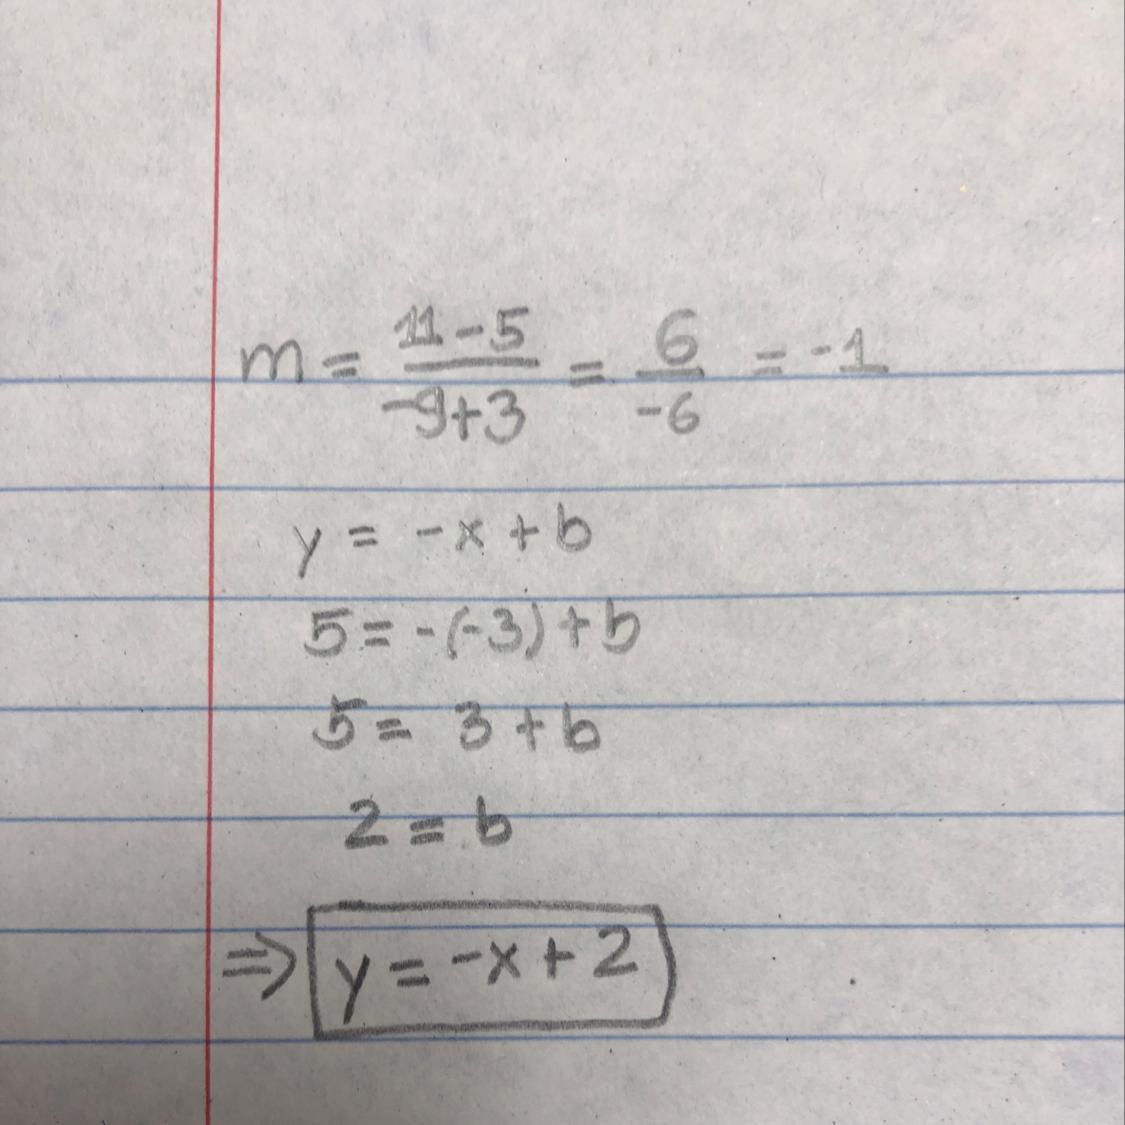 m = \frac{11-5}{-9+3} = \frac{6}{-6} = -1
y = -x + b
5 = -(-3) + b
5 = 3 + b
2 = b
⇒ y = -x + 2